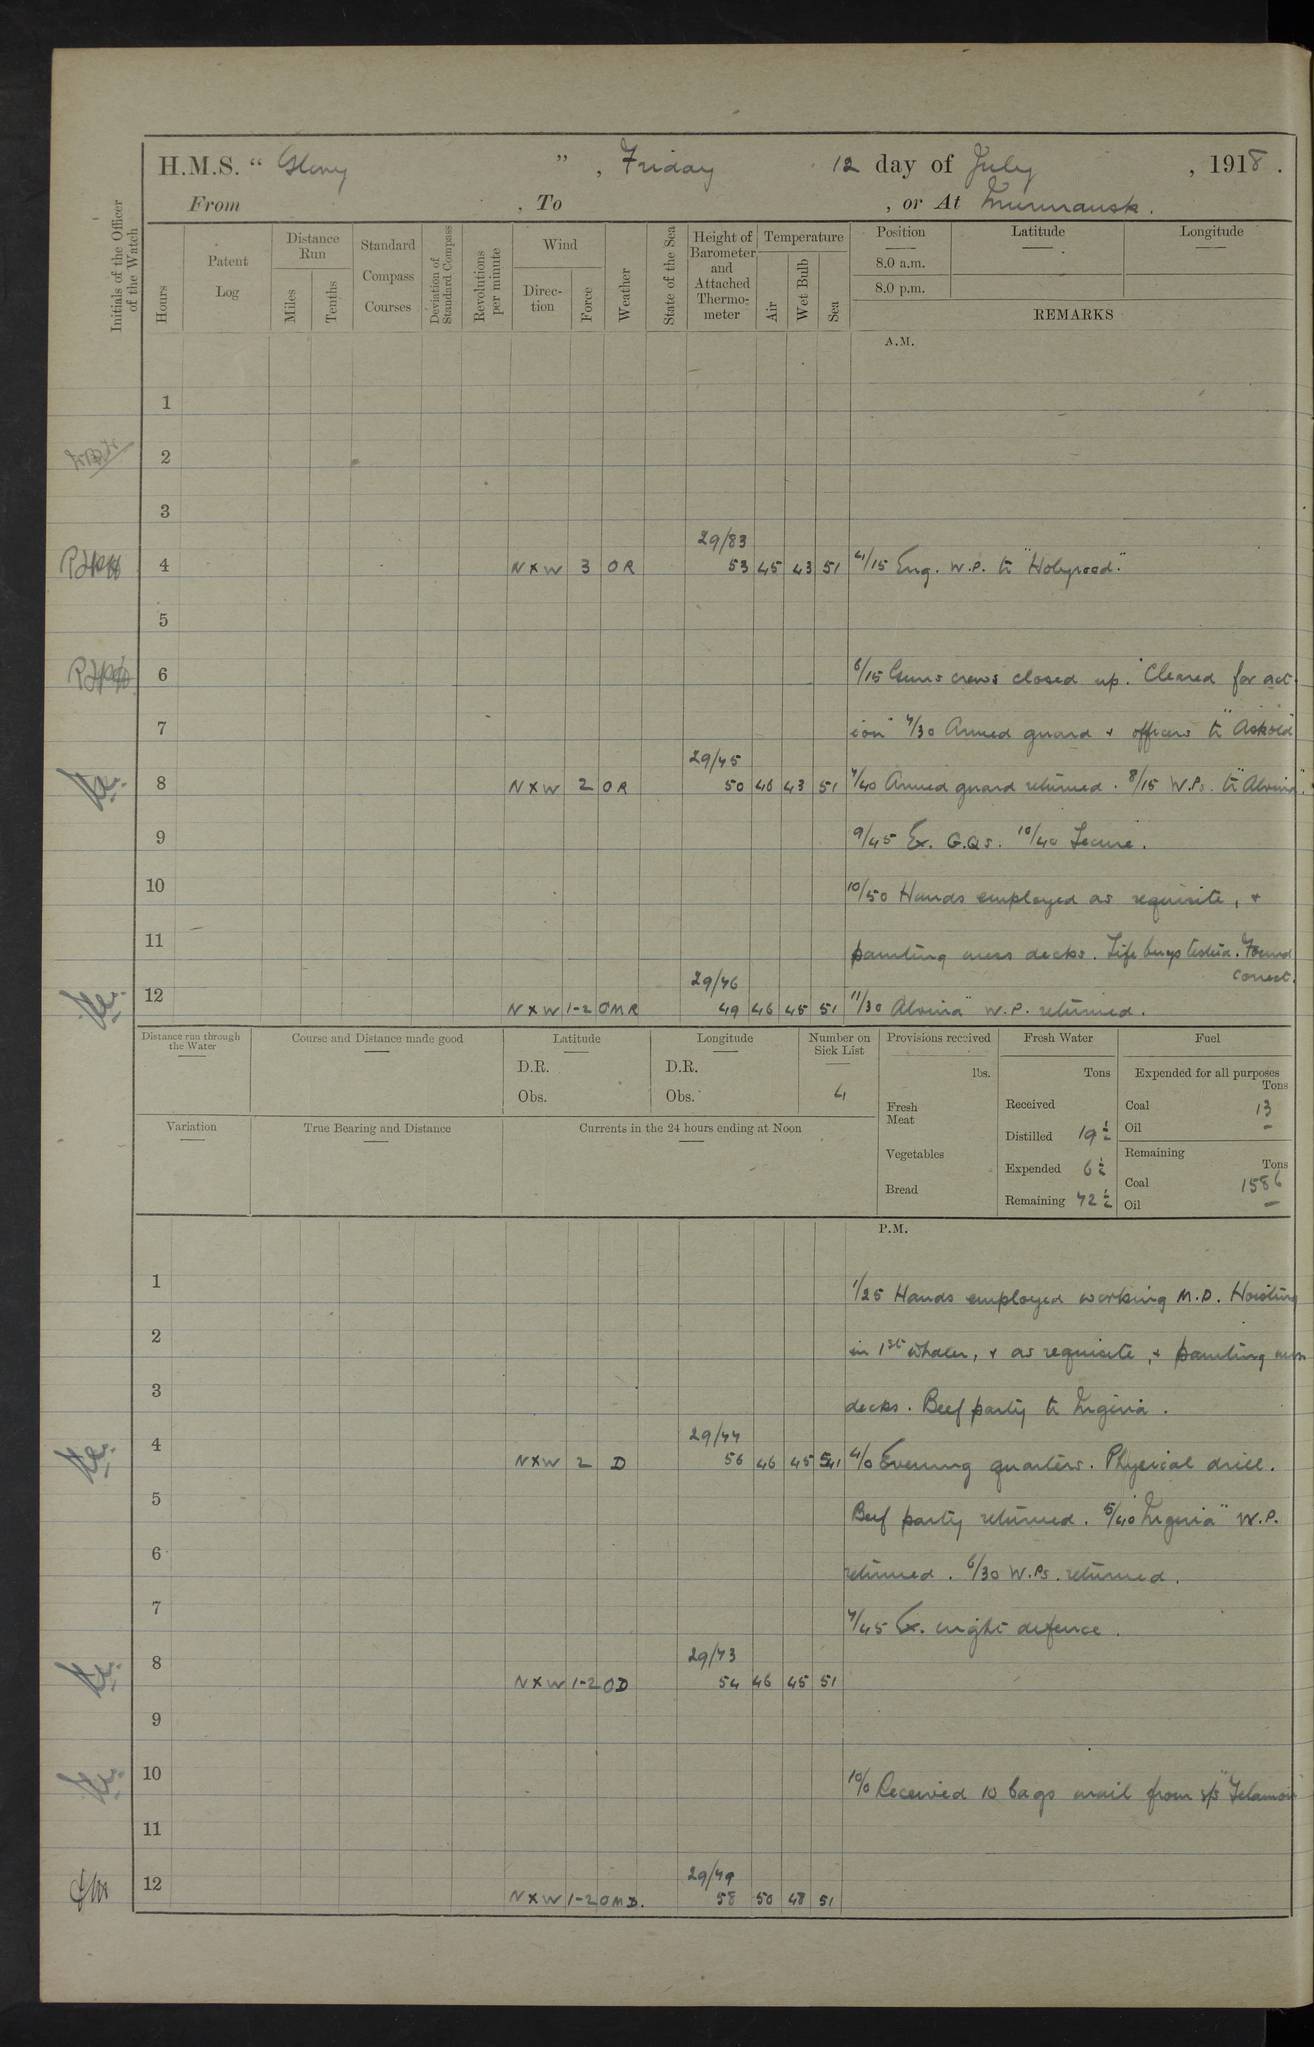 H.M.S. " Glory " , Friday 12 day of July , 1918 .
From , To , or At Murmansk .
Initials of the Officer of the Watch
Hours
Patent Log
Distance Run
Miles
Tenths
Standard Compass Courses
Deviation of Standard Compass
Revolutions per minute
Wind
Direc- tion
Force
Weather
State of the Sea
Height of Barometer and Attached Thermo- meter
Temperature
Air
Wet Bulb
Sea
Position
8.0 a.m.
8.0 p.m.
Latitude
Longitude
REMARKS
A.M.
1
2
3
29/83
4 N X W 3 O R 53 45 43 51 4/15 Eng. W.P. to "Holyrood."
5
6 6/15 Guns crews closed up. "Cleared for act-
7 ion" 7/30 Armed guard + officers to "Askold"
29/75
8 N X W 2 O R 50 46 43 51 7/40 Armed guard returned. 8/15 W.Ps. to "Alvina".
9 9/45 Ex. G.Qs. 10/40 Secure.
10 10/50 Hands employed as requisite, +
11 painting mess decks. Life buoys tested. Found
correct.
29/76
12 N X W 1-2 O M R 49 46 45 51 11/30 Alvina" W.P. returned.
Distance run through the Water
Course and Distance made good
Latitude
D.R.
Obs.
Longitude
D.R.
Obs.
Number on Sick List
4
Provisions received
lbs.
Fresh Meat
Vegetables
Bread
Fresh Water
Tons
Received
Distilled 19 ½
Expended 6 ½
Remaining 72 ½
Fuel
Expended for all purposes
Tons
Coal 13
Oil —
Remaining
Tons
Coal 1586
Oil —
Variation
True Bearing and Distance
Currents in the 24 hours ending at Noon
P.M.
1 1/25 Hands employed working M.D. Hoisting
2 in 1st whaler, + as requisite, + painting mess
3 decks. Beef party to
29/77
4 N X W 2 D 56 46 45 51 4/0 Evening quarters. Physical drill.
5 Beef party returned. 5/40 W.P.
6 returned. 6/30 W.Ps. returned.
7 7/45 Ex. night defence.
29/73
8 N X W 1-2 O D 54 46 45 51
9
10 10/0 Received 10 bags mail from s/s "Telamon"
11
29/79
12 N X W 1-2 O M D. 58 50 48 51